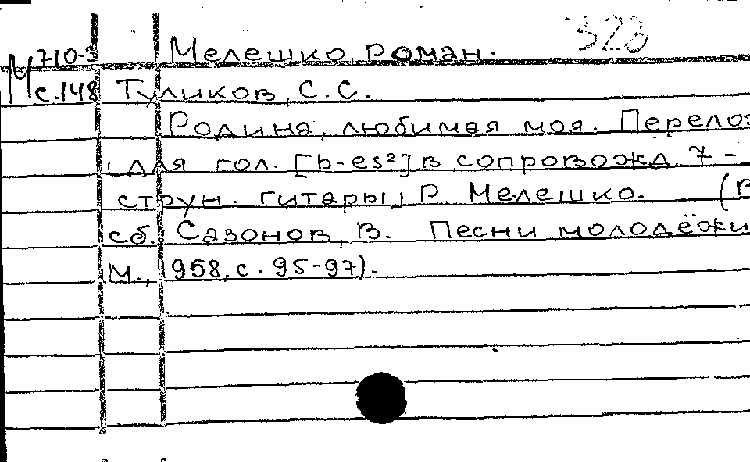 710-3 Мелешко Роман. 323
М с.148 Туликов, С.С.
Родина, любимая моя. Перелож
для гол. [b-es²] в сопровожд. 7-
струн. гитары, Р. Мелешко. (В
сб. Сазонов, В. Песни молодёжи
М., 1958, с. 95-97).